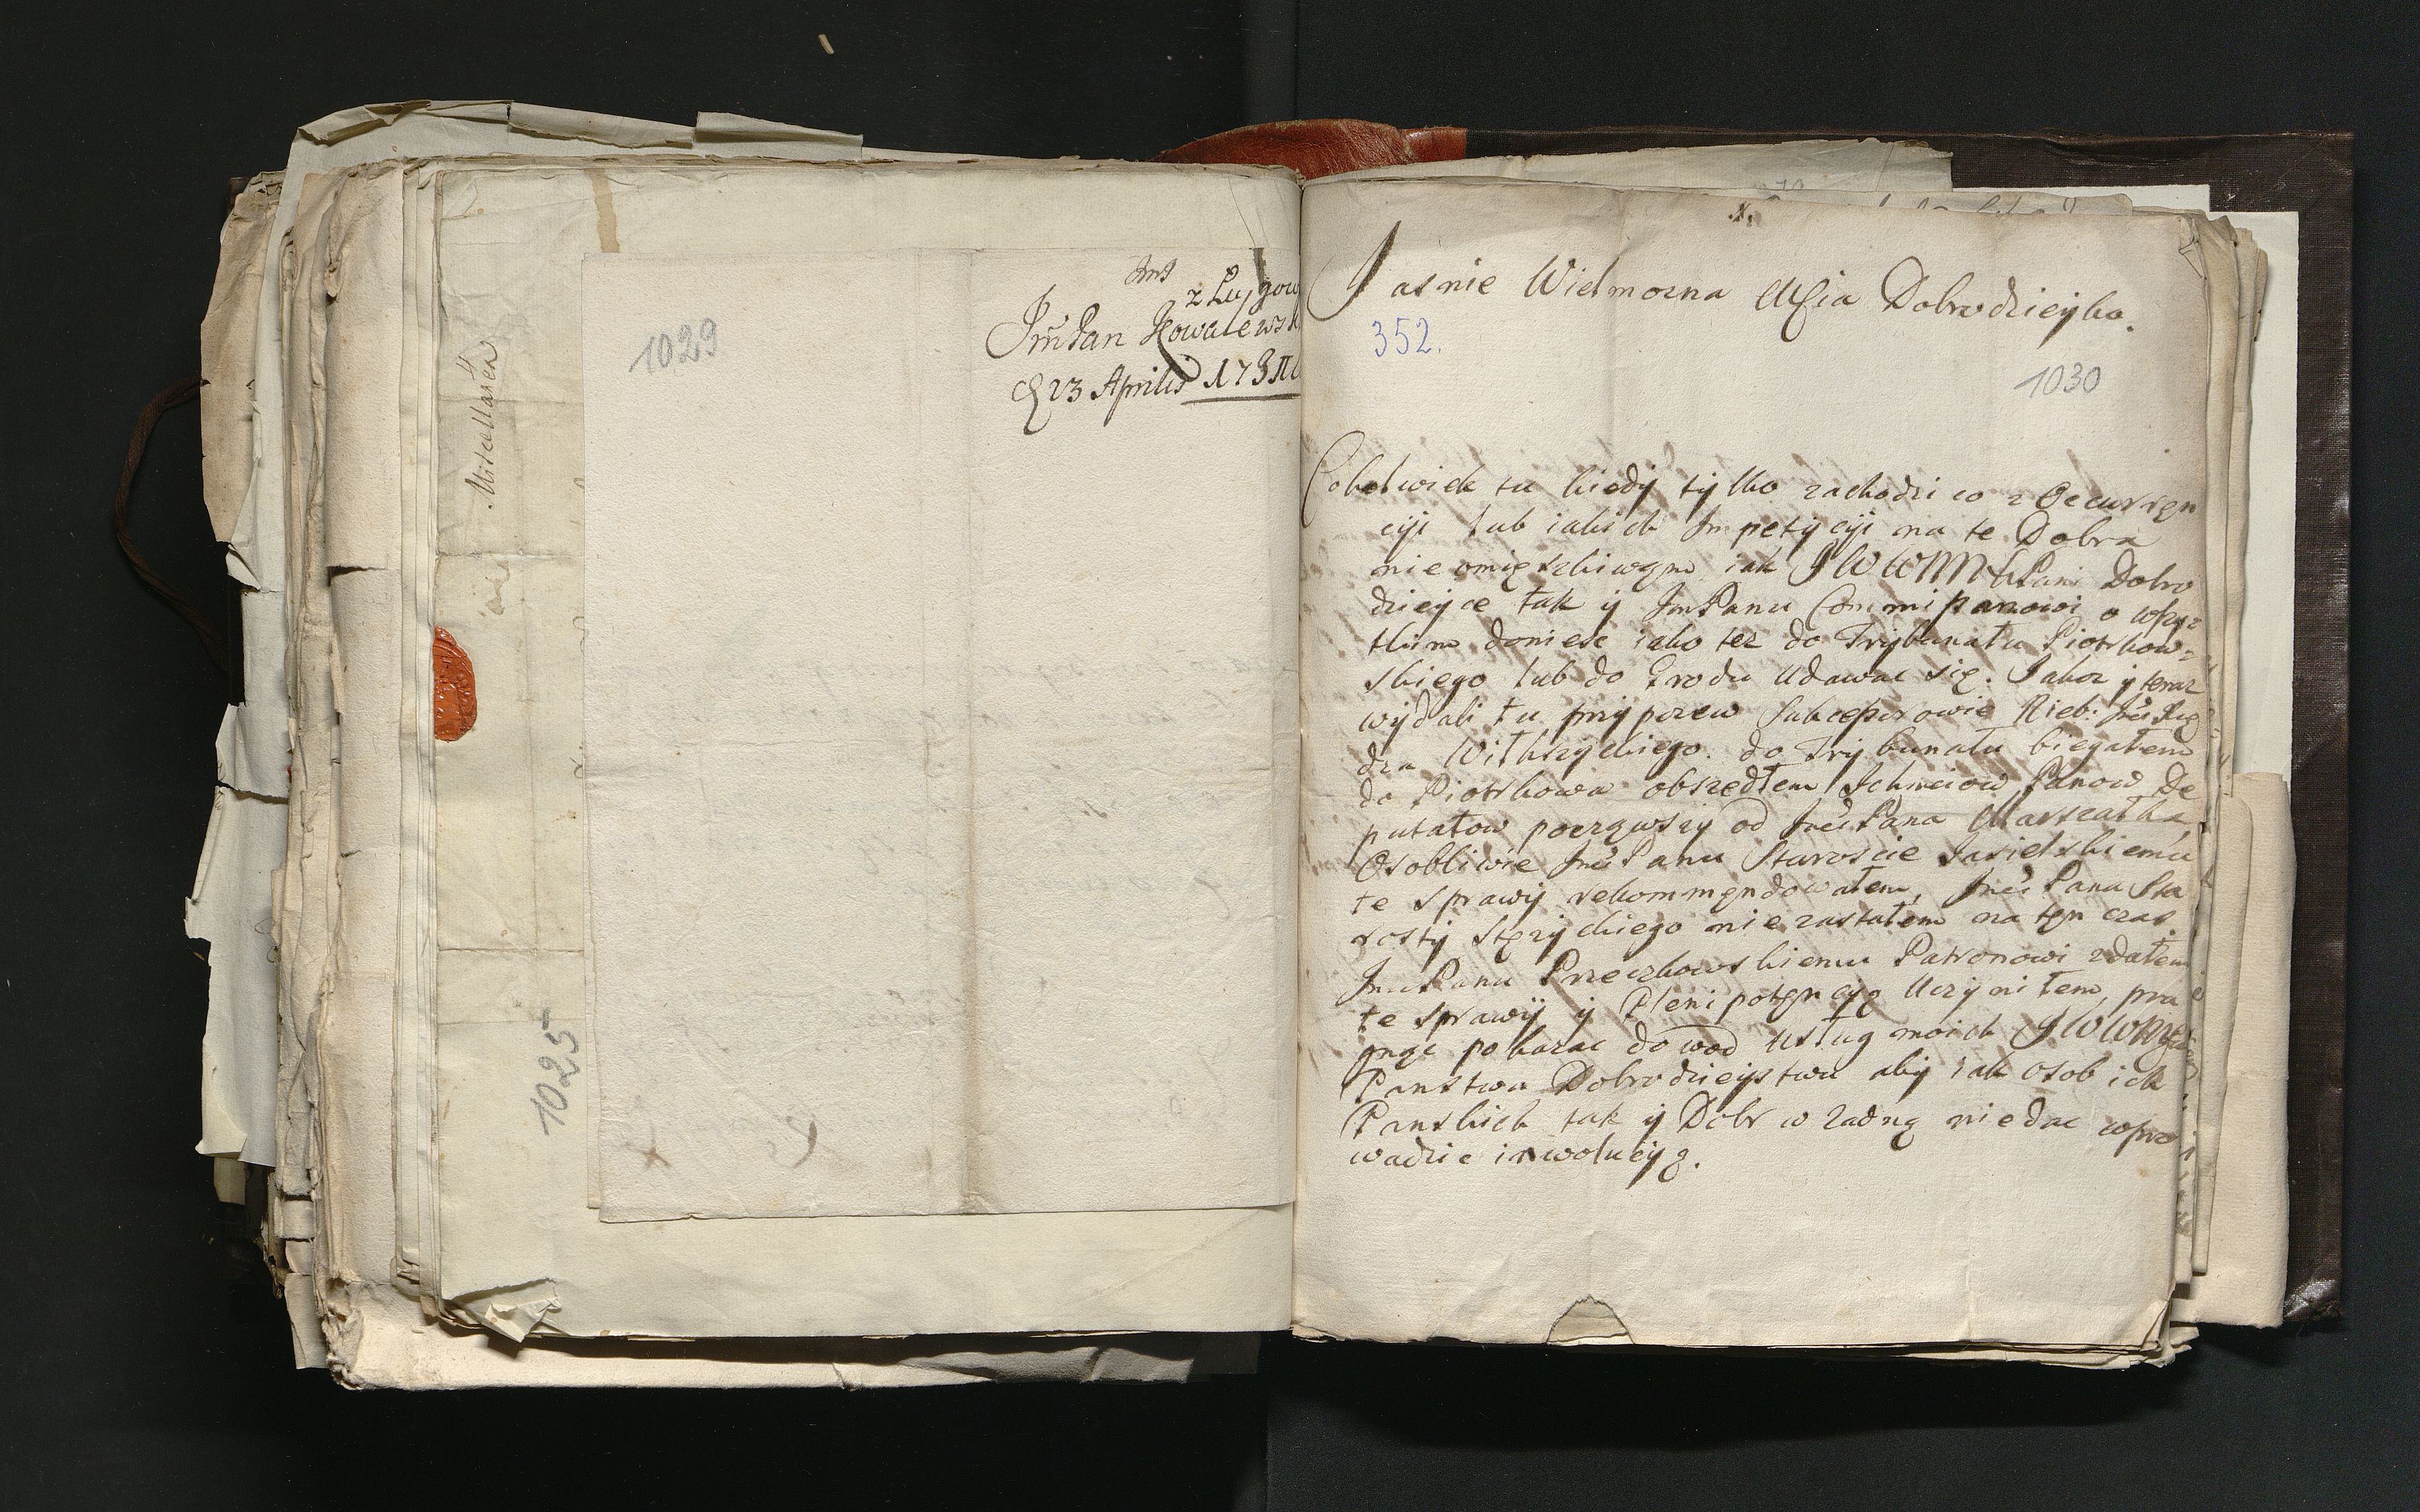 Miscellanea
1025
1029
z Ługow
JmPan Kowalewsk
23 Aprilis
Jasnie Wielmozna Mscia Dobrodzieyko.
352.
1030
Cokolwiek tu kiedÿ tÿlko zachodzi co z Occurręn
cÿi lub iakich Impetÿcÿi na te Dobra
nieomięszkiwam iak JWWM Pani Dobro
dzieyce tak ÿ JmPanu Commissarzowi o wszÿs
tkim doniesc iako tez do Trÿbunału Piotrkow=
skiego lub do Grodu udawac się. Jakoz ÿ teraz
wÿdali tu przÿpozew Sukcessorowie Nieb: Jmci Xię
dza Witkrzÿckiego do Trÿbunału biegałem
do Piotrkowa obszedłem Ichmciow Panow De
putatow począwszÿ od Jmci Pana Marszałka,
Osobliwie Jmci Panu Staroscie Jasielskiemu
te sprawÿ rekommęndowałem, Jmci Pana Sta
rostÿ Stęzÿckiego nie zastałem na tęn czas
Jmci Panu Przeczkowskiemu Patronowi zdałem
te sprawÿ ÿ Plenipotęncÿą Uczÿniłem, pra
gnąc pokazac dowod usług moich
Panstwu Dobrodzieÿstwu abÿ iak osob ich
Panskich tak ÿ Dobr w zadną nie dac wpro
wadzic inwolucÿą.